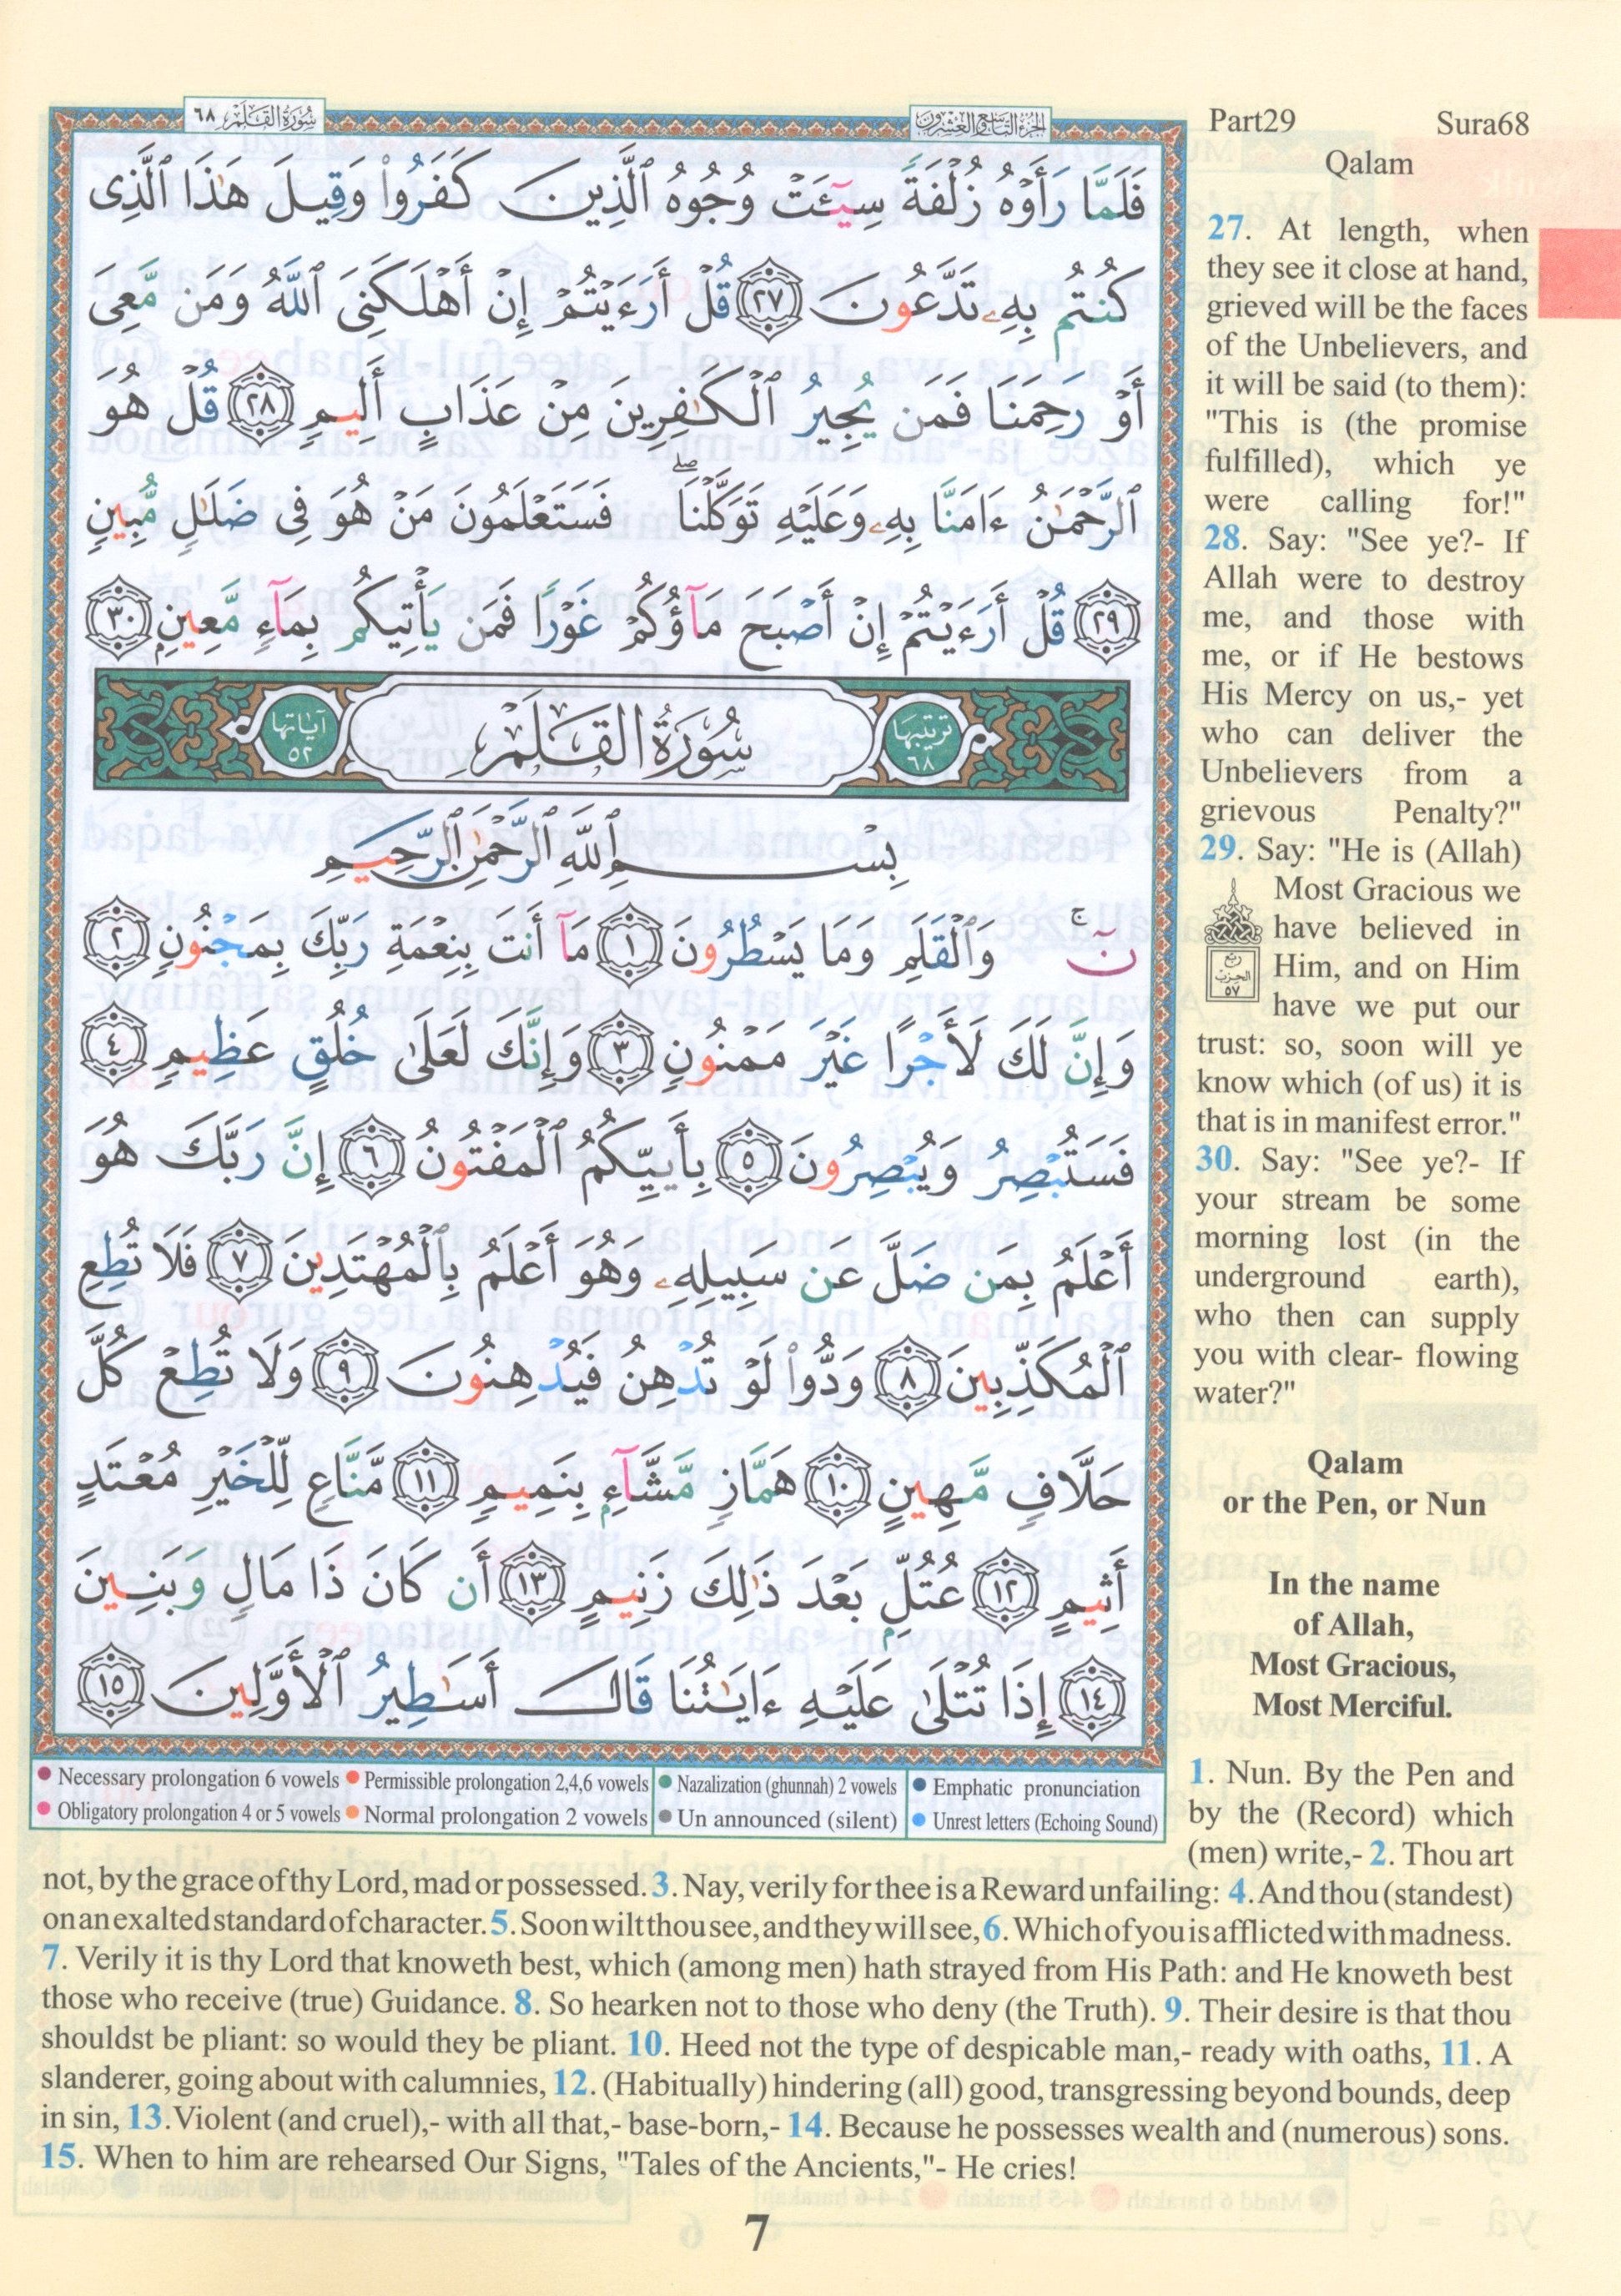 سُورَةُ القَلَمِ ٦٨
الجزء التاسع والعشرون
Part29 Sura68
Qalam
فَلَمَّا رَأَوْهُ زُلْفَةً سِيٓـَٔتْ وُجُوهُ ٱلَّذِينَ كَفَرُوا۟ وَقِيلَ هَـٰذَا ٱلَّذِى
كُنتُم بِهِۦ تَدَّعُونَ ٢٧ قُلْ أَرَءَيْتُمْ إِنْ أَهْلَكَنِىَ ٱللَّهُ وَمَن مَّعِىَ
أَوْ رَحِمَنَا فَمَن يُجِيرُ ٱلْكَـٰفِرِينَ مِنْ عَذَابٍ أَلِيمٍ ٢٨ قُلْ هُوَ
ٱلرَّحْمَـٰنُ ءَامَنَّا بِهِۦ وَعَلَيْهِ تَوَكَّلْنَا ۖ فَسَتَعْلَمُونَ مَنْ هُوَ فِى ضَلَـٰلٍ مُّبِينٍ
٢٩ قُلْ أَرَءَيْتُمْ إِنْ أَصْبَحَ مَآؤُكُمْ غَوْرًا فَمَن يَأْتِيكُم بِمَآءٍ مَّعِينٍ ٣٠
ترتيبها ٦٨ سُورَةُ القَلَمِ آياتها ٥٢
بِسْمِ ٱللَّهِ ٱلرَّحْمَـٰنِ ٱلرَّحِيمِ
نٓ ۚ وَٱلْقَلَمِ وَمَا يَسْطُرُونَ ١ مَآ أَنتَ بِنِعْمَةِ رَبِّكَ بِمَجْنُونٍ ٢
وَإِنَّ لَكَ لَأَجْرًا غَيْرَ مَمْنُونٍ ٣ وَإِنَّكَ لَعَلَىٰ خُلُقٍ عَظِيمٍ ٤
فَسَتُبْصِرُ وَيُبْصِرُونَ ٥ بِأَييِّكُمُ ٱلْمَفْتُونُ ٦ إِنَّ رَبَّكَ هُوَ
أَعْلَمُ بِمَن ضَلَّ عَن سَبِيلِهِۦ وَهُوَ أَعْلَمُ بِٱلْمُهْتَدِينَ ٧ فَلَا تُطِعِ
ٱلْمُكَذِّبِينَ ٨ وَدُّوا۟ لَوْ تُدْهِنُ فَيُدْهِنُونَ ٩ وَلَا تُطِعْ كُلَّ
حَلَّافٍ مَّهِينٍ ١٠ هَمَّازٍ مَّشَّآءٍۭ بِنَمِيمٍ ١١ مَّنَّاعٍ لِّلْخَيْرِ مُعْتَدٍ
أَثِيمٍ ١٢ عُتُلٍّۭ بَعْدَ ذَٰلِكَ زَنِيمٍ ١٣ أَن كَانَ ذَا مَالٍ وَبَنِينَ
١٤ إِذَا تُتْلَىٰ عَلَيْهِ ءَايَـٰتُنَا قَالَ أَسَـٰطِيرُ ٱلْأَوَّلِينَ ١٥
27. At length, when
they see it close at hand,
grieved will be the faces
of the Unbelievers, and
it will be said (to them):
"This is (the promise
fulfilled), which ye
were calling for!"
28. Say: "See ye?- If
Allah were to destroy
me, and those with
me, or if He bestows
His Mercy on us,- yet
who can deliver the
Unbelievers from a
grievous Penalty?"
29. Say: "He is (Allah)
Most Gracious we
have believed in
Him, and on Him
have we put our
trust: so, soon will ye
know which (of us) it is
that is in manifest error."
30. Say: "See ye?- If
your stream be some
morning lost (in the
underground earth),
who then can supply
you with clear- flowing
water?"
ربع
الحزب
٥٧
Qalam
or the Pen, or Nun
In the name
of Allah,
Most Gracious,
Most Merciful.
Necessary prolongation 6 vowels Permissible prolongation 2,4,6 vowels Nazalization (ghunnah) 2 vowels Emphatic pronunciation
Obligatory prolongation 4 or 5 vowels Normal prolongation 2 vowels Un announced (silent) Unrest letters (Echoing Sound)
1. Nun. By the Pen and
by the (Record) which
(men) write,- 2. Thou art
not, by the grace of thy Lord, mad or possessed. 3. Nay, verily for thee is a Reward unfailing: 4. And thou (standest)
on an exalted standard of character. 5. Soon wilt thou see, and they will see, 6. Which of you is afflicted with madness.
7. Verily it is thy Lord that knoweth best, which (among men) hath strayed from His Path: and He knoweth best
those who receive (true) Guidance. 8. So hearken not to those who deny (the Truth). 9. Their desire is that thou
shouldst be pliant: so would they be pliant. 10. Heed not the type of despicable man,- ready with oaths, 11. A
slanderer, going about with calumnies, 12. (Habitually) hindering (all) good, transgressing beyond bounds, deep
in sin, 13. Violent (and cruel),- with all that,- base-born,- 14. Because he possesses wealth and (numerous) sons.
15. When to him are rehearsed Our Signs, "Tales of the Ancients,"- He cries!
7